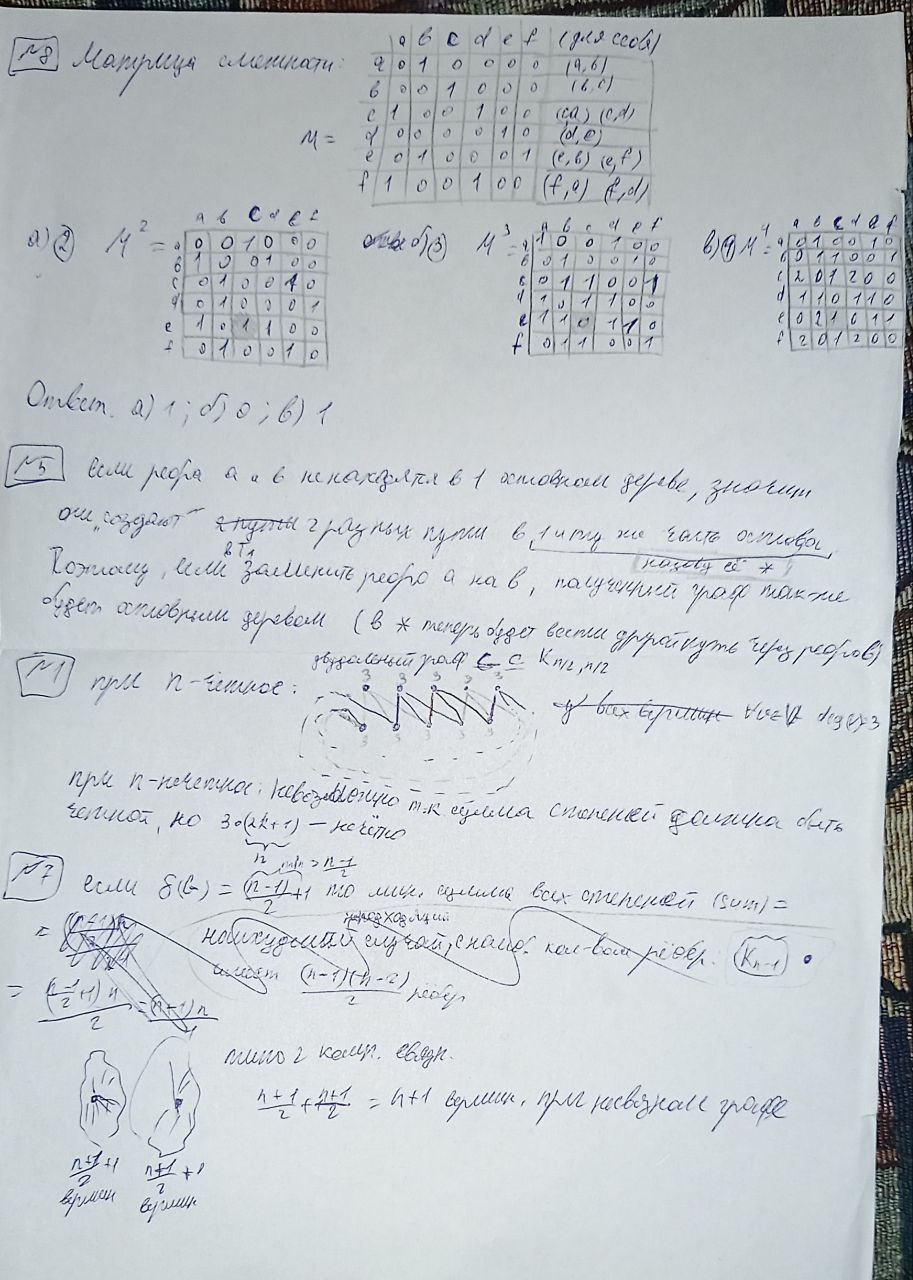 №8 Матрица смежности:
a b c d e f (для себя)
a 0 1 0 0 0 0 (a,b)
b 0 0 1 0 0 0 (b,c)
c 1 0 0 1 0 0 (ca) (c,d)
M =
d 0 0 0 0 1 0 (d,e)
e 0 1 0 0 0 1 (e,b) (e,f)
f 1 0 0 1 0 0 (f,a) (f,d)
а) 2) M² =
a b c d e f
a 0 0 1 0 0 0
b 1 0 0 1 0 0
c 0 1 0 0 1 0
d 0 1 0 0 0 1
e 1 0 1 1 0 0
f 0 1 0 0 1 0
б) 3) M³ =
a b c d e f
a 1 0 0 1 0 0
b 0 1 0 0 1 0
c 0 1 1 0 0 1
d 1 0 1 1 0 0
e 1 1 0 1 1 0
f 0 1 1 0 0 1
в) 4) M⁴ =
a b c d e f
a 0 1 0 0 1 0
b 0 1 1 0 0 1
c 2 0 1 2 0 0
d 1 1 0 1 1 0
e 0 2 1 0 1 1
f 2 0 1 2 0 0
Ответ. а) 1; б) 0; в) 1
№5 Если ребра a и b не находятся в 1 остовном дереве, значит
они "создают" 2 разных пути в 1 и ту же часть остова,
назову её *
Поэтому, если в T₁ заменить ребро a на b, полученный граф так-же
будет остовным деревом (в * теперь будет вести другой путь через ребро b)
№1 при n-чётное: двудольный граф с K n/2, n/2
3 3 3 3 3
3 3 3 3 3
у всех вершин ∀v∈V deg(v)=3
при n-нечетное: невозможно т.к сумма степеней должна быть
четной, но 3·(2k+1) – нечётно
n
№7 если δ(G) = (n-1)/2 + 1 то мин. сумма всех степеней (sum) =
наихудший подходящий случай, с наиб. кол-вом рёбер: K n-1 •
имеет (n-1)(n-2)/2 рёбер
= (n-1/2 +1) n / 2 = (n+1) n
2 комп. связн.
n+1/2 + n+1/2 = n+1 вершин. при несвязном графе
n+1/2 +1 вершин
n+1/2 +1 вершин